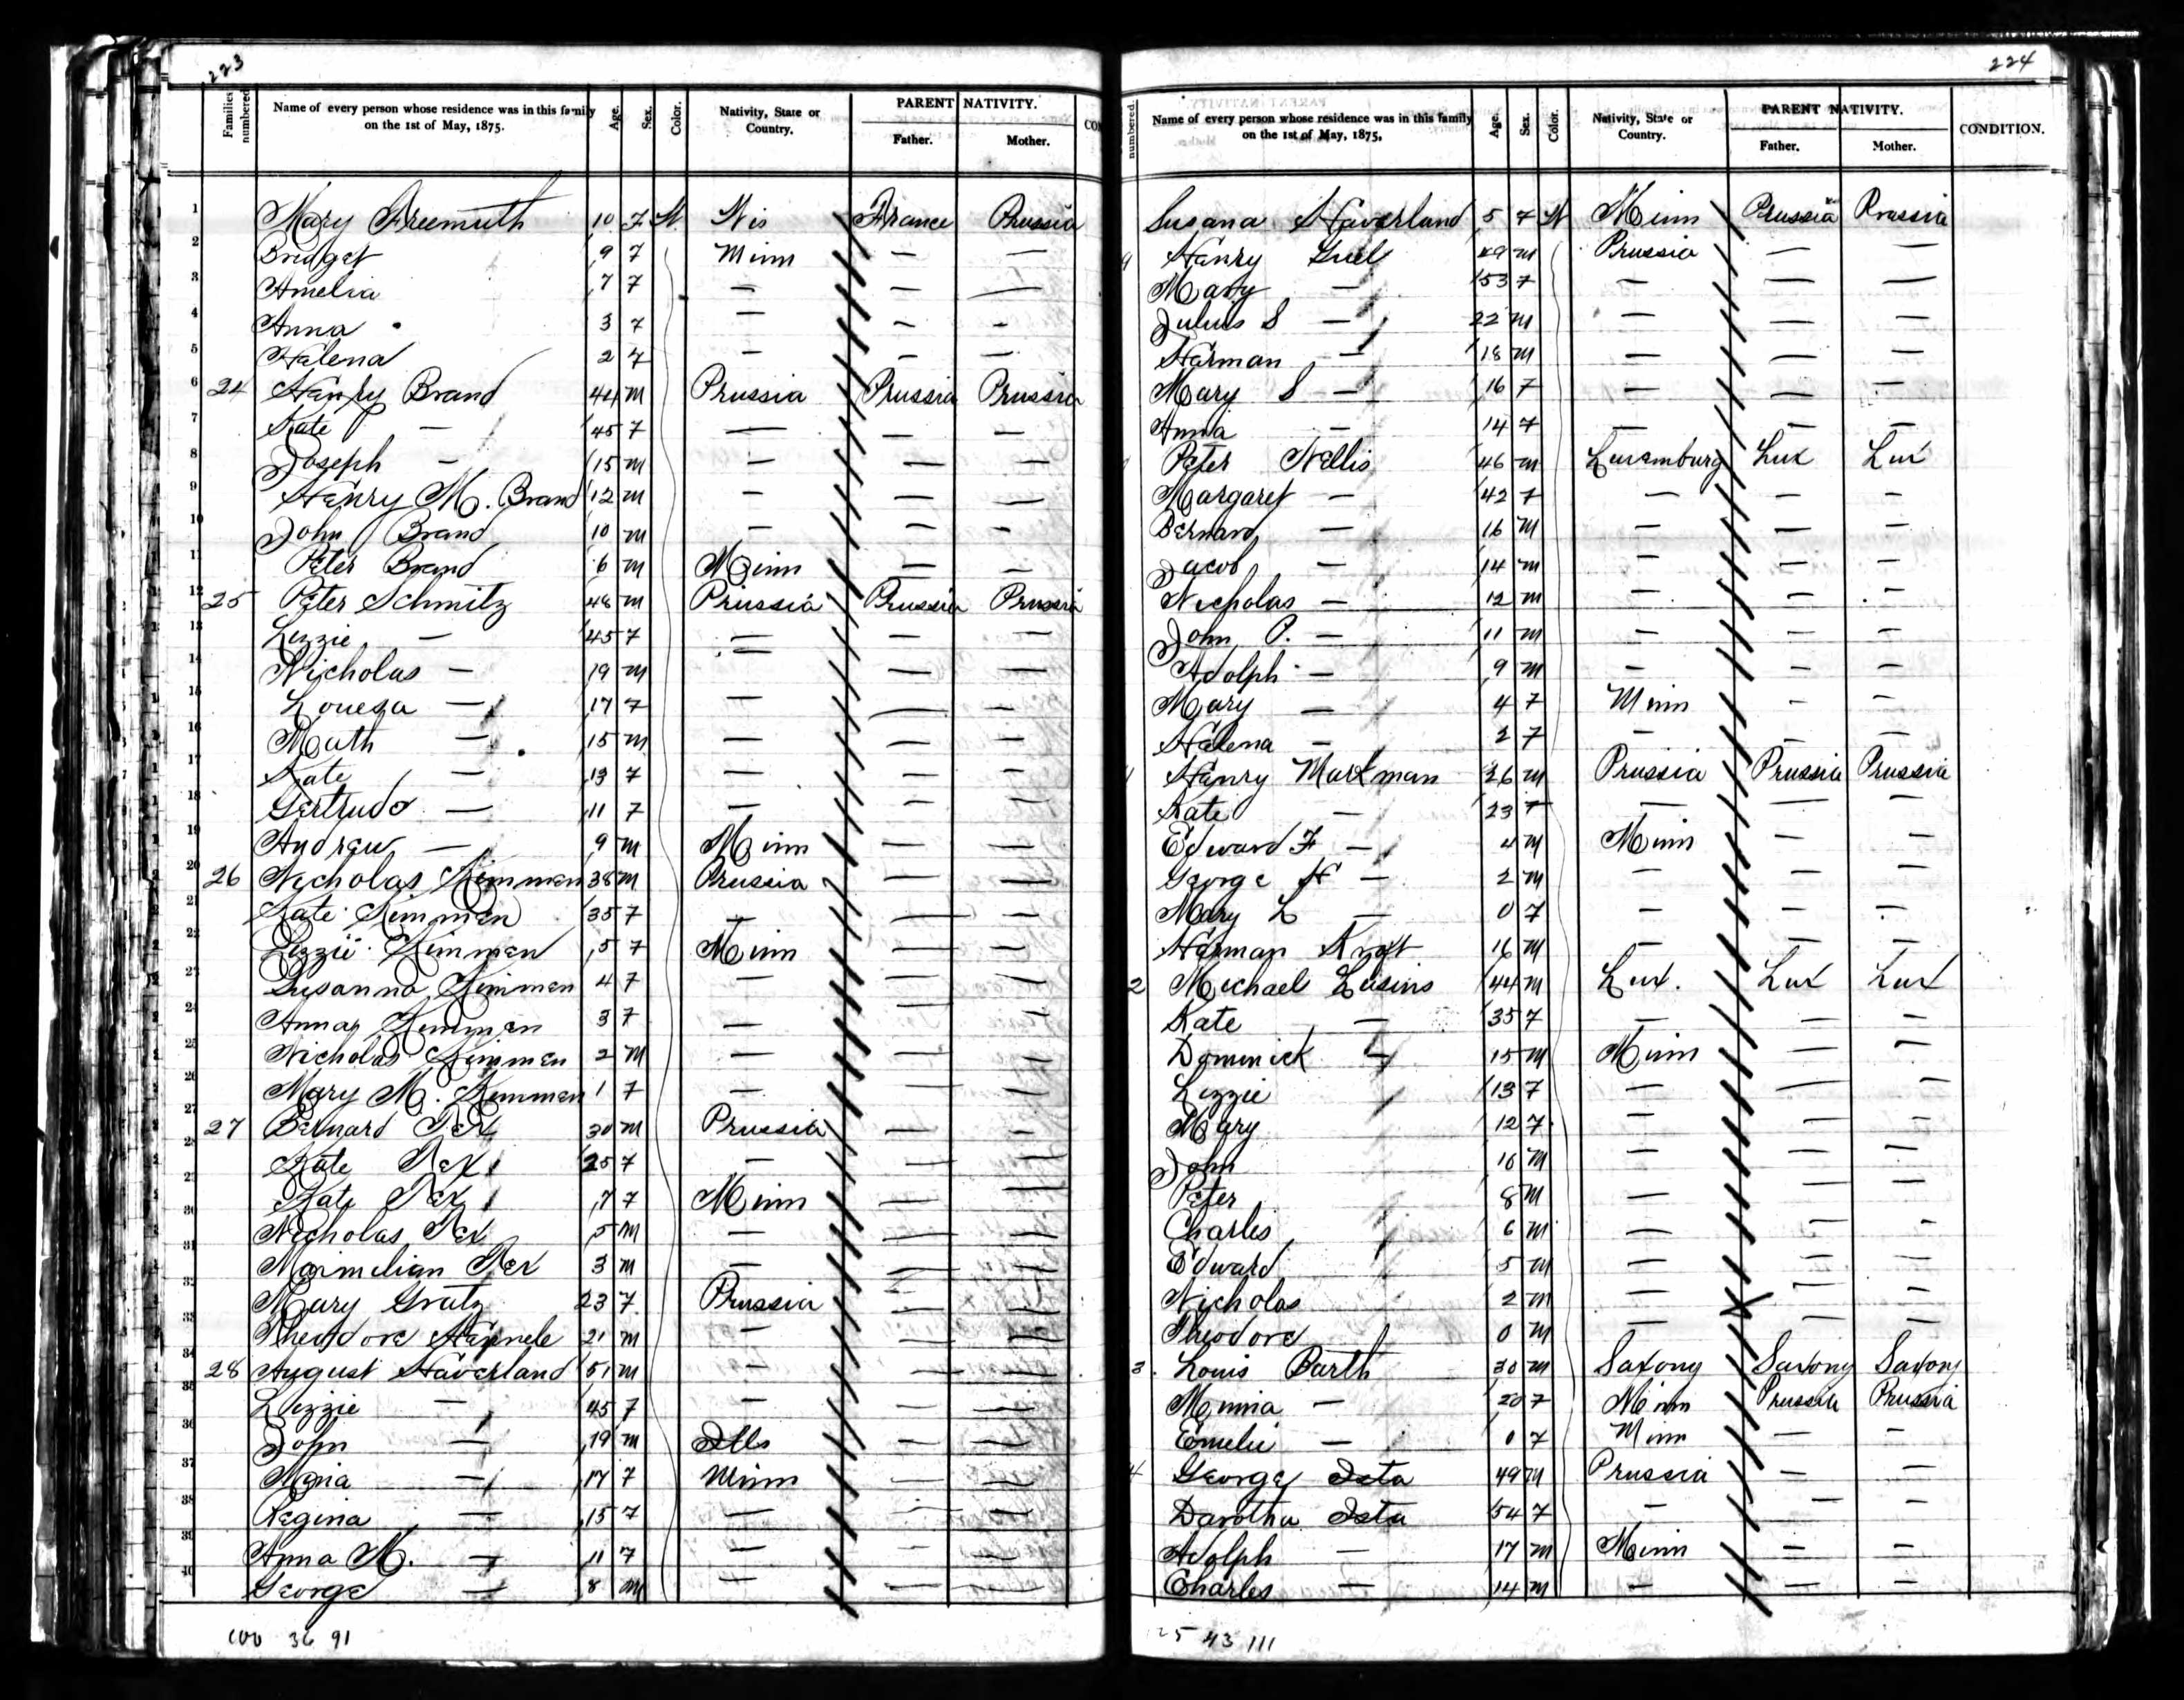 223
Families numbered
Name of every person whose residence was in this family on the 1st of May, 1875.
Age.
Sex.
Color.
Nativity, State or Country.
PARENT NATIVITY.
Father.
Mother.
1 Mary Freemuth 10 F W. Wis France Prussia
2 Bridget 9 F Minn — —
3 Amelia 7 F — — —
4 Anna 3 F — — —
5 Halena 2 F — — —
6 24 Henry Brand 44 M Prussia Prussia Prussia
7 Kate — 45 F — — —
8 Joseph — 15 M — — —
9 Henry M. Brand 12 M — — —
10 John Brand 10 M — — —
11 Peter Brand 6 M Minn — —
12 25 Peter Schmitz 48 M Prussia Prussia Prussia
13 Lizzie — 45 F — — —
14 Nicholas — 19 M — — —
15 Louesa — 17 F — — —
16 Math — 15 M — — —
17 Kate — 13 F — — —
18 Gertrude — 11 F — — —
19 Andrew — 9 M Minn — —
20 26 Nicholas Kimmen 38 M Prussia — —
21 Kate Kimmen 35 F — — —
22 Lizzie Kimmen 5 F Minn — —
23 Susanna Kimmen 4 F — — —
24 Anna Kimmen 3 F — — —
25 Nicholas Kimmen 2 M — — —
26 Mary M. Kimmen 1 F — — —
27 27 Bernard Rex 30 M Prussia — —
28 Kate Rex 25 F — — —
29 Kate Rex 7 F Minn — —
30 Nicholas Rex 5 M — — —
31 Maxmilian Rex 3 M — — —
32 Mary Gratz 23 F Prussia — —
33 Theodore 21 M — — —
34 28 August Haverland 51 M — — —
35 Lizzie — 45 F — — —
36 John — 19 M Ills — —
37 — 17 F Minn — —
38 Regina — 15 F — — —
39 Anna M. — 11 F — — —
40 George — 8 M — — —
100 36 91
224
numbered.
Name of every person whose residence was in this family on the 1st of May, 1875.
Age.
Sex.
Color.
Nativity, State or Country.
PARENT NATIVITY.
Father.
Mother.
CONDITION.
Susana Haverland 5 F W Minn Prussia Prussia
9 Henry 49 M Prussia — —
Mary — 53 F — — —
Julius S — 22 M — — —
Harman — 18 M — — —
Mary S — 16 F — — —
Anna — 14 F — — —
Peter Nellis 46 M Luxemburg Lux Lux
Margaret — 42 F — — —
Bernard — 16 M — — —
Jacob — 14 M — — —
Nicholas — 12 M — — —
John P. — 11 M — — —
Adolph — 9 M — — —
Mary — 4 F Minn — —
Halena — 2 F — — —
1 Henry Markman 26 M Prussia Prussia Prussia
Kate — 23 F — — —
Edward F — 4 M Minn — —
George H — 2 M — — —
Mary L — 0 F — — —
Harman 16 M — — —
2 Michael 44 M Lux. Lux Lux
Kate — 35 F — — —
Dominick — 15 M Minn — —
Lizzie 13 F — — —
Mary 12 F — — —
John 10 M — — —
Peter 8 M — — —
Charles 6 M — — —
Edward 5 M — — —
Nicholas 2 M — — —
Theodore 0 M — — —
3. Louis Barth 30 M Saxony Saxony Saxony
Minna — 20 F Minn Prussia Prussia
Emelie — 0 F Minn — —
4 George Ista 49 M Prussia — —
Darotha Ista 54 F — — —
Adolph — 17 M Minn — —
Charles — 14 M — — —
25 43 111